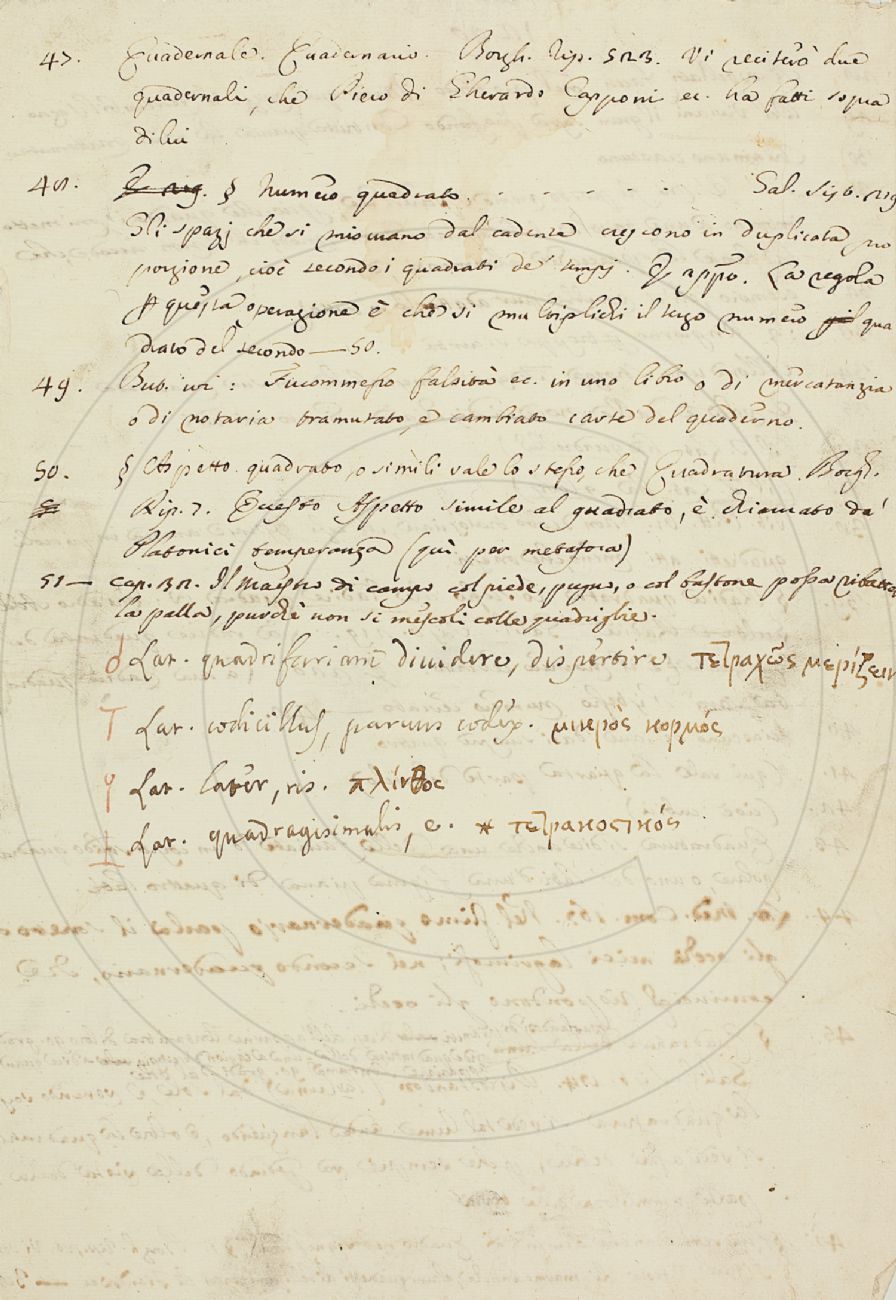 47. Quadernale. Quadernario. Borgh. Rip. 523. Vi reciterò due
quadernali, che Piero di Gherardo Capponi ec. ha fatti sopra
di lui
48. § Numero quadrato. - - - - - - Gal. Sist. 219
Gli spazj che si misurano dal cadente crescono in duplicata pro
porzione, cioè secondo i quadrati de' tempi. E appr. La regola
questa operazione è che si multiplichi il terzo numero pel qua
drato del secondo — 50.
49. But. ivi: Fu commesso falsità ec. in uno libro o di mercatanzia
o di notaria tramutato, e cambiato carte del quaderno.
50. § Aspetto quadrato, o simili vale lo stesso, che Quadratura. Borgh.
Rip. 7. Questo Aspetto simile al quadrato, è chiamato da'
Platonici temperanza (quì per metafora)
51 — cap. 32. Il Maestro di campo col piede, pugno, o col bastone possa ributtar
la palla, purchè non si mescoli colle quadriglie.
Lat. quadrifariam dividere, dispertire τετραχῶς μερίζειν
Lat. codicillus, parvus codex. μικρὸς κορμός
Lat. later, ris. πλίνθος
Lat. quadragesimalis, e. * τετρακοστικός